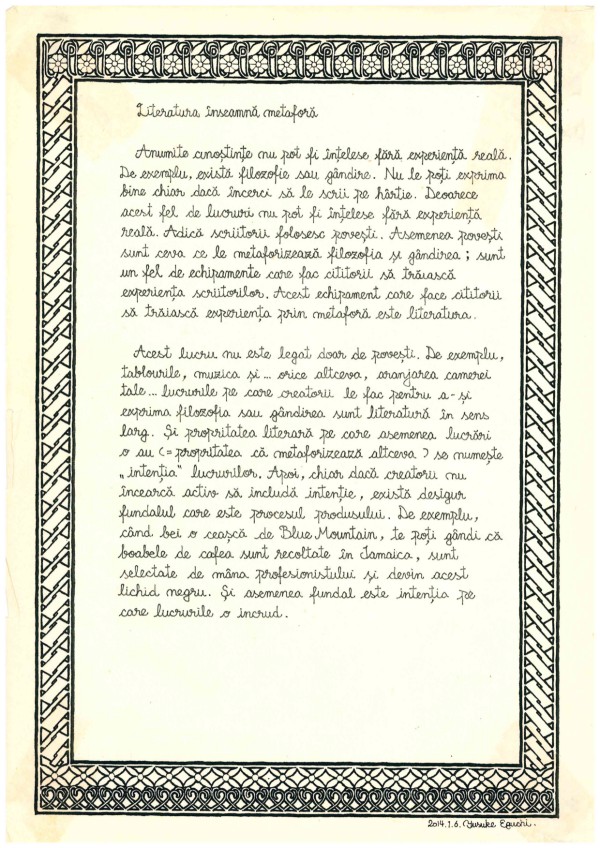 Literatura înseamnă metaforă
Anumite cunoștințe nu pot fi înțelese fără experiență reală.
De exemplu, există filozofie sau gândire. Nu le poți exprima
bine chiar dacă încerci să le scrii pe hârtie. Deoarece
acest fel de lucruri nu pot fi înțelese fără experiență
reală. Adică scriitorii folosesc povești. Asemenea povești
sunt ceva ce le metaforizează filozofia și gândirea; sunt
un fel de echipamente care fac cititorii să trăiască
experiența scriitorilor. Acest echipament care face cititorii
să trăiască experiența prin metaforă este literatura.
Acest lucru nu este legat doar de povești. De exemplu,
tablourile, muzica și... orice altceva, aranjarea camerei
tale... lucrurile pe care creatorii le fac pentru a-și
exprima filozofia sau gândirea sunt literatură în sens
larg. Și propritatea literară pe care asemenea lucrări
o au (=propritatea că metaforizează altceva) se numește
„intenția" lucrurilor. Apoi, chiar dacă creatorii nu
încearcă activ să includă intenție, există desigur
fundalul care este procesul produsului. De exemplu,
când bei o ceașcă de Blue Mountain, te poți gândi că
boabele de cafea sunt recoltate în Jamaica, sunt
selectate de mâna profesionistului și devin acest
lichid negru. Și asemenea fundal este intenția pe
care lucrurile o incrud.
2014.1.6. Yusuke Eguchi.